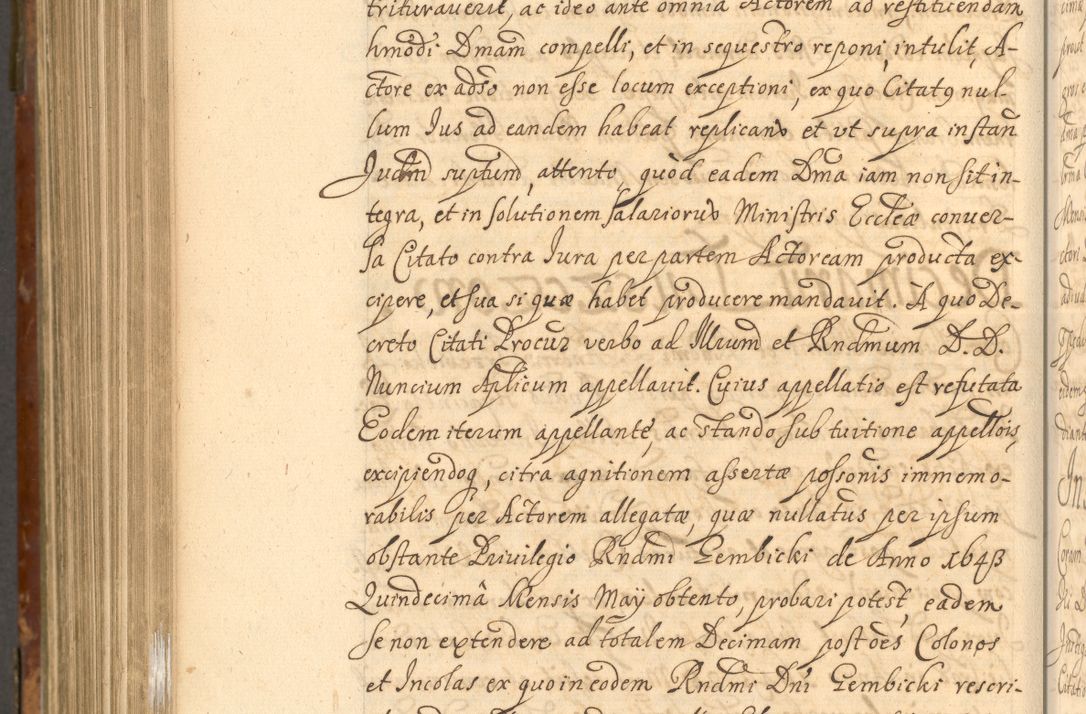 trituraverit, ac ideo ante omnia Actorem ad restituendam
hmodi Dmam compelli, et in sequestro reponi, intulit, A-
ctore ex adso non esse locum exceptioni, ex quo Citat9 nul-
lum Ius ad eandem habeat replican et vt supra instan
Judm suptum, attento, quòd eadem Dma iam non sit in-
tegra, et in solutionem salarioru Ministris Eccleæ conver-
sa Citato contra Iura per partem Actoream producta ex-
cipere, et sua si quæ habet producere mandavit. A quo De-
creto Citati Procur verbo ad Illrum et Rndmum D. D.
Nuncium Aplicum appellavit. Cuius appellatio est refutata
Eodem iterum appellante, ac stando sub tuitione appellois
excipiendoq, citra agnitionem assertæ possonis immemo-
rabilis per Actorem allegatæ, quæ nullatus per ipsum
obstante Privilegio Rndmi Gembicki de Anno 1643
Quindecimâ Mensis Maÿ obtento, probari potest, eadem
se non extendere ad totalem Decimam post oes Colonos
et Incolas ex quo in eodem Rndmi Dni Gembicki rescri-